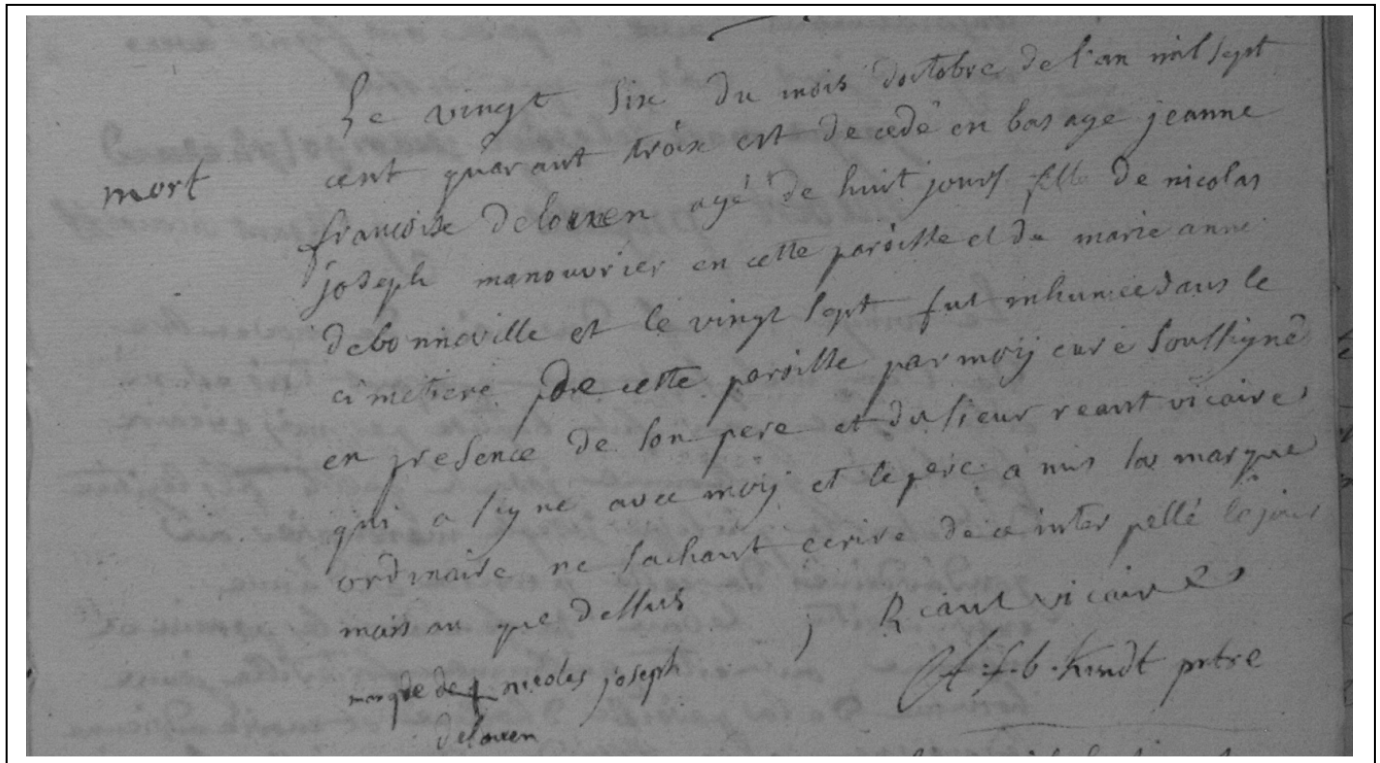 mort
Le vingt six du mois doctobre de l'an mil sept
cent quarant troix est decedé en bas age jeanne
francoise delouen agé de huit jours fille de nicolas
joseph manouvrier en cette paroisse et de marie anne
debonneville et le vingt sept fut inhumée dans le
cimetiere de cette paroisse par moÿ curé soussigné
en presence de son pere et du sieur reant vicaire
qui a signe avec moÿ et le pere a mis sa marque
ordinaire ne sachant ecrire de ce inter pellé le jour
mois an que dessus
j Reant vicaire
marque de nicolas joseph
delouen
f.b. Kindt prtre